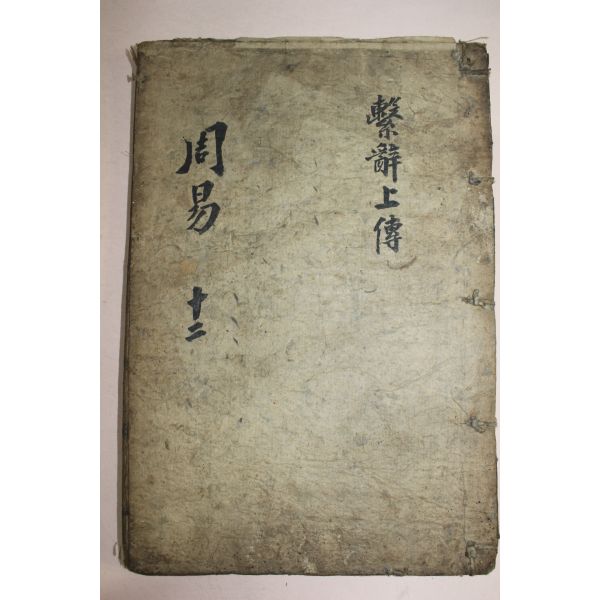 繫辭上傳
周易 十二